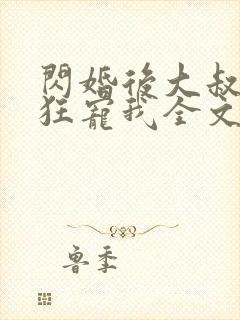 閃婚後大叔
狂寵我全文
魯季